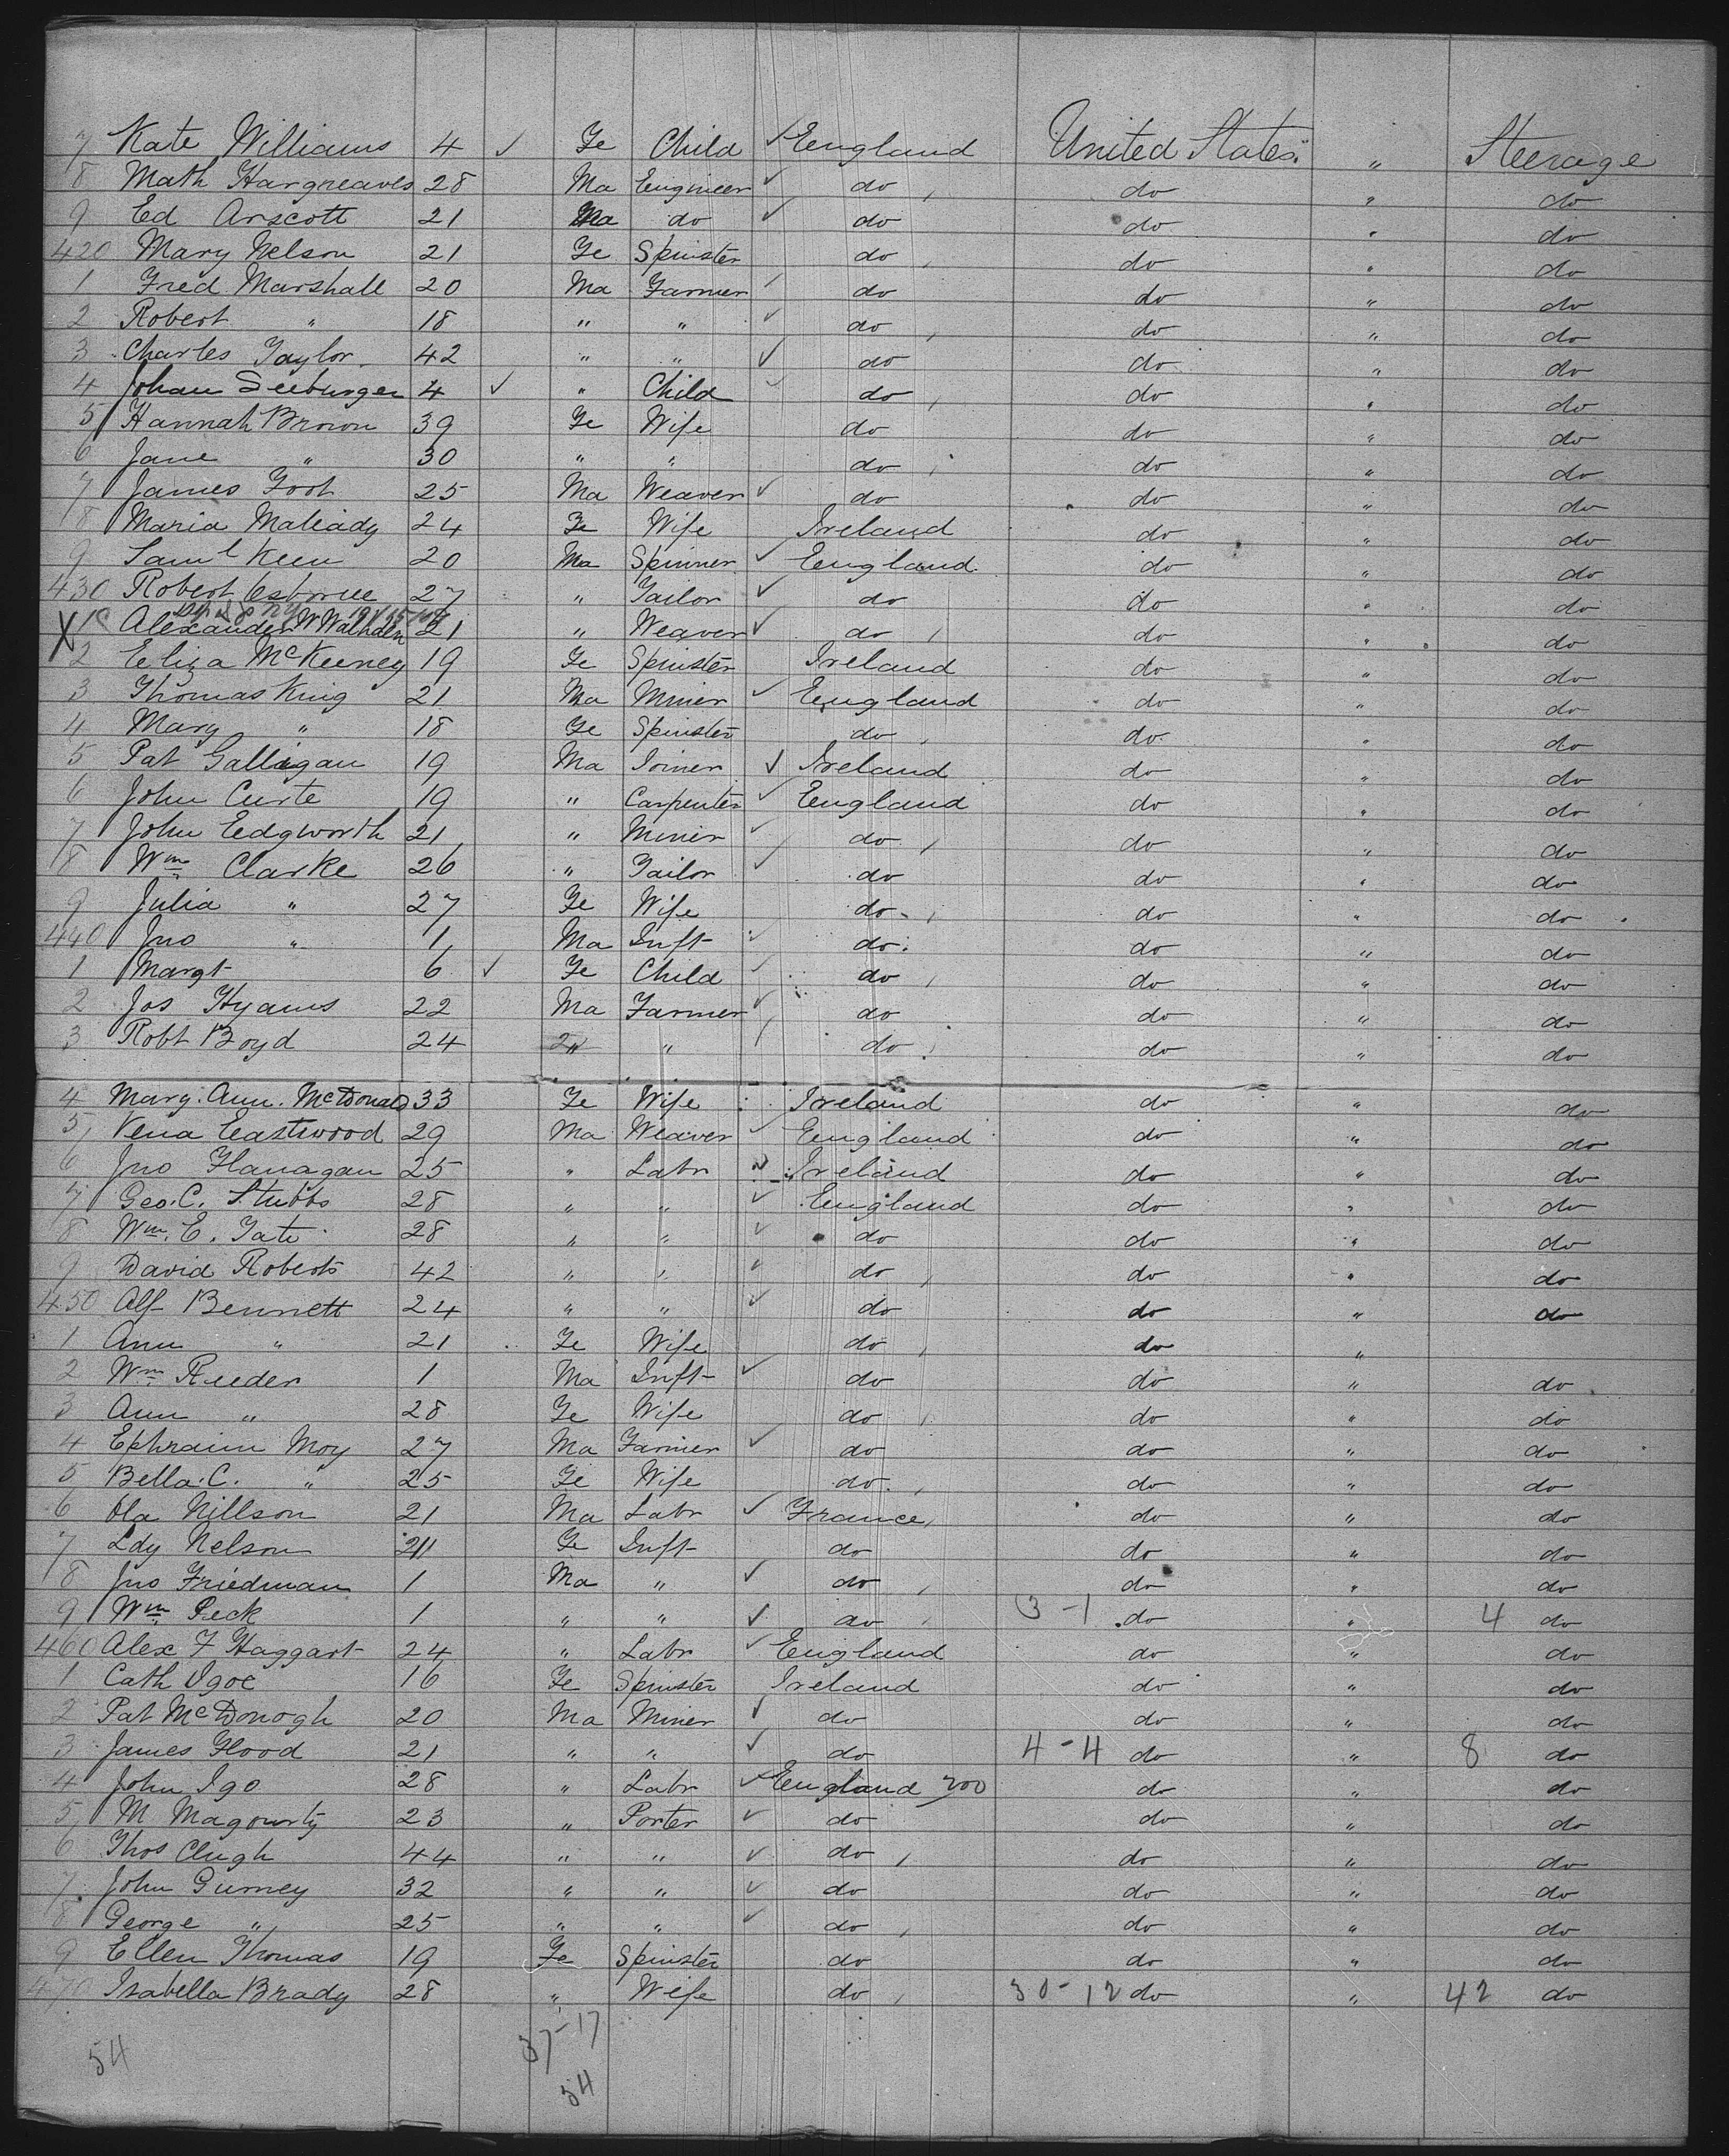 7 Kate Williams 4 ✓ Fe Child ✓ England United States " Steerage
8 Math Hargreaves 28 Ma Engineer ✓ do do " do
9 Ed Arscott 21 Ma do ✓ do do " do
420 Mary Nelson 21 Fe Spinster do do " do
1 Fred Marshall 20 Ma Farmer ✓ do do " do
2 Robert " 18 " " ✓ do do " do
3 Charles Taylor 42 " " ✓ do do " do
4 Johan Seeburger 4 ✓ " Child ✓ do do " do
5 Hannah Brown 39 Fe Wife do do " do
6 Jane " 30 " " do do " do
7 James Foot 25 Ma Weaver ✓ do do " do
8 Maria 24 Fe Wife Ireland do " do
9 Saml Keen 20 Ma Spinner ✓ England do " do
430 Robert Osborne 27 " Tailor ✓ do do " do
X 1 Alexander W 21 " Weaver ✓ do do " do
2 Eliza McKeeney 19 Fe Spinster Ireland do " do
3 Thomas King 21 Ma Miner ✓ England do " do
4 Mary " 18 Fe Spinster do do " do
5 Pat Galligan 19 Ma Joiner ✓ Ireland do " do
6 John Curte 19 " Carpenter ✓ England do " do
7 John Edgworth 21 " Miner ✓ do do " do
8 Wm Clarke 26 " Tailor ✓ do do " do
9 Julia " 27 Fe Wife do do " do
440 Jno " 1 Ma Inft ✓ do do " do
1 Margt 6 ✓ Fe Child ✓ do do " do
2 Jos Hyams 22 Ma Farmer ✓ do do " do
3 Robt Boyd 24 " " do do " do
4 Mary Ann McDonald 33 Fe Wife Ireland do " do
5 Vena Eastwood 29 Ma Weaver ✓ England do " do
6 Jno Flanagan 25 " Labr ✓ Ireland do " do
7 Geo. C. Stubbs 28 " " ✓ England do " do
8 Wm. E. Tate 28 " " ✓ do do " do
9 David Roberts 42 " " ✓ do do " do
450 Alf Bennett 24 " " ✓ do do " do
1 Ann " 21 Fe Wife do do "
2 Wm Reeder 1 Ma Inft ✓ do do " do
3 Ann " 28 Fe Wife do do " do
4 Ephraim Moy 27 Ma Farmer ✓ do do " do
5 Bella. C. " 25 Fe Wife do do " do
6 Ola Nillson 21 Ma Labr ✓ France do " do
7 Ldy Nelson Fe Inft do do " do
8 Jno Friedman 1 Ma " ✓ do do " do
9 Wm Peck 1 " " ✓ do 3-1 do " 4 do
460 Alex F Haggart 24 " Labr ✓ England do " do
1 Cath Igoe 16 Fe Spinster Ireland do " do
2 Pat McDonogh 20 Ma Miner ✓ do do " do
3 James Flood 21 " " ✓ do 4-4 do " 8 do
4 John Igo 28 " Labr ✓ England do " do
5 M Magourty 23 " Porter ✓ do do " do
6 Thos Clugh 44 " " ✓ do do " do
7 John Gurney 32 " " ✓ do do " do
8 George " 25 " " ✓ do do " do
9 Ellen Thomas 19 Fe Spinster do do " do
470 Isabella Brady 28 " Wife do 30-12 do " 42 do
54 37-17
54